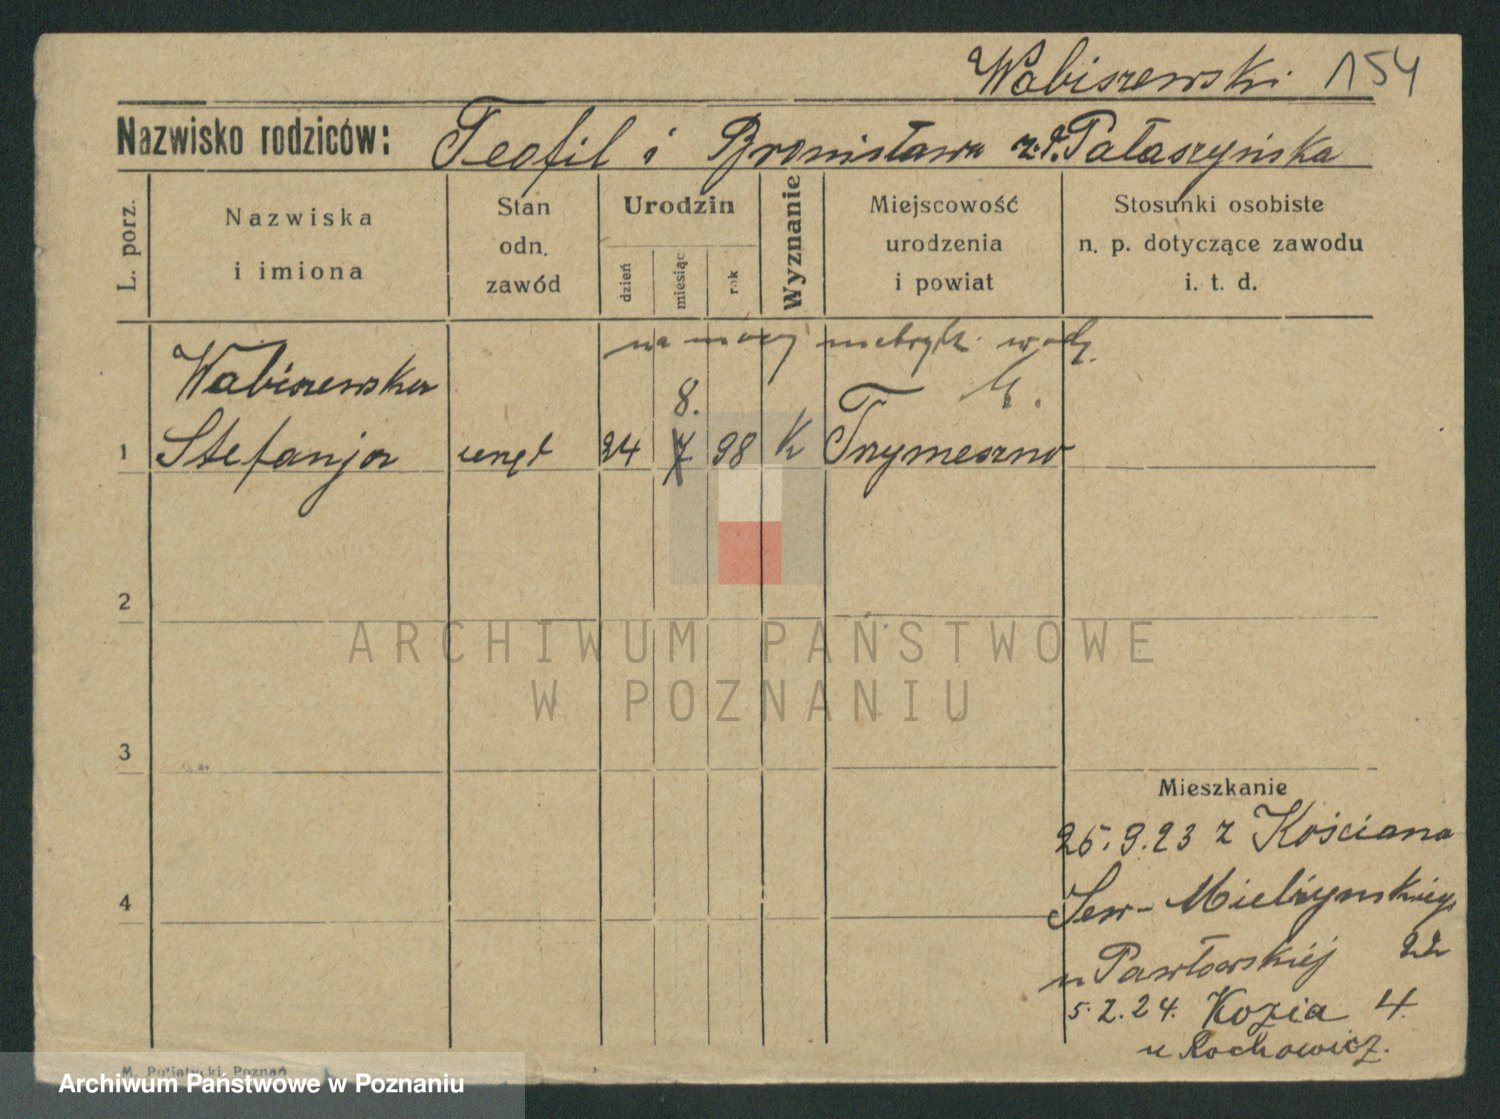 Wabiszewski 154
Nazwisko rodziców: Teofil i Bronisława z d. Pałaszyńska
L. porz.
Nazwiska
i imiona
Stan
odn.
zawód
Urodzin
dzień
miesiąc
rok
Wyznanie
Miejscowość
urodzenia
i powiat
Stosunki osobiste
n. p. dotyczące zawodu
i. t. d.
na mocy metryk. urodz.
Wabiszewska
8.
1 Stefanja 24 7 98 K Trzymeszno
2
3
4
ARCHIWUM PAŃSTWOWE
W POZNANIU
Mieszkanie
25.9.23 z Kościana
Sew-Mielżyńskiego
u Pawłowskiéj 22
5.2.24. Kozia 4.
u Rochowicz.
M. Putiatycki, Poznań
Archiwum Państwowe w Poznaniu